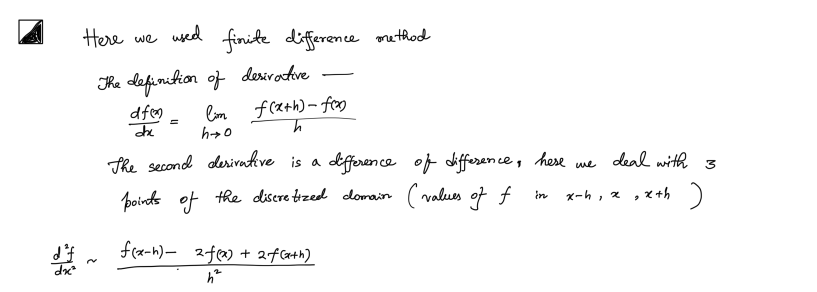 Here we used finite difference method
The definition of derivative —
df(x)/dx = lim h→0 f(x+h) - f(x) / h
The second derivative is a difference of difference, here we deal with 3
points of the discretized domain (values of f in x-h, x, x+h)
d²f/dx² ~ f(x-h) - 2f(x) + 2f(x+h) / h²